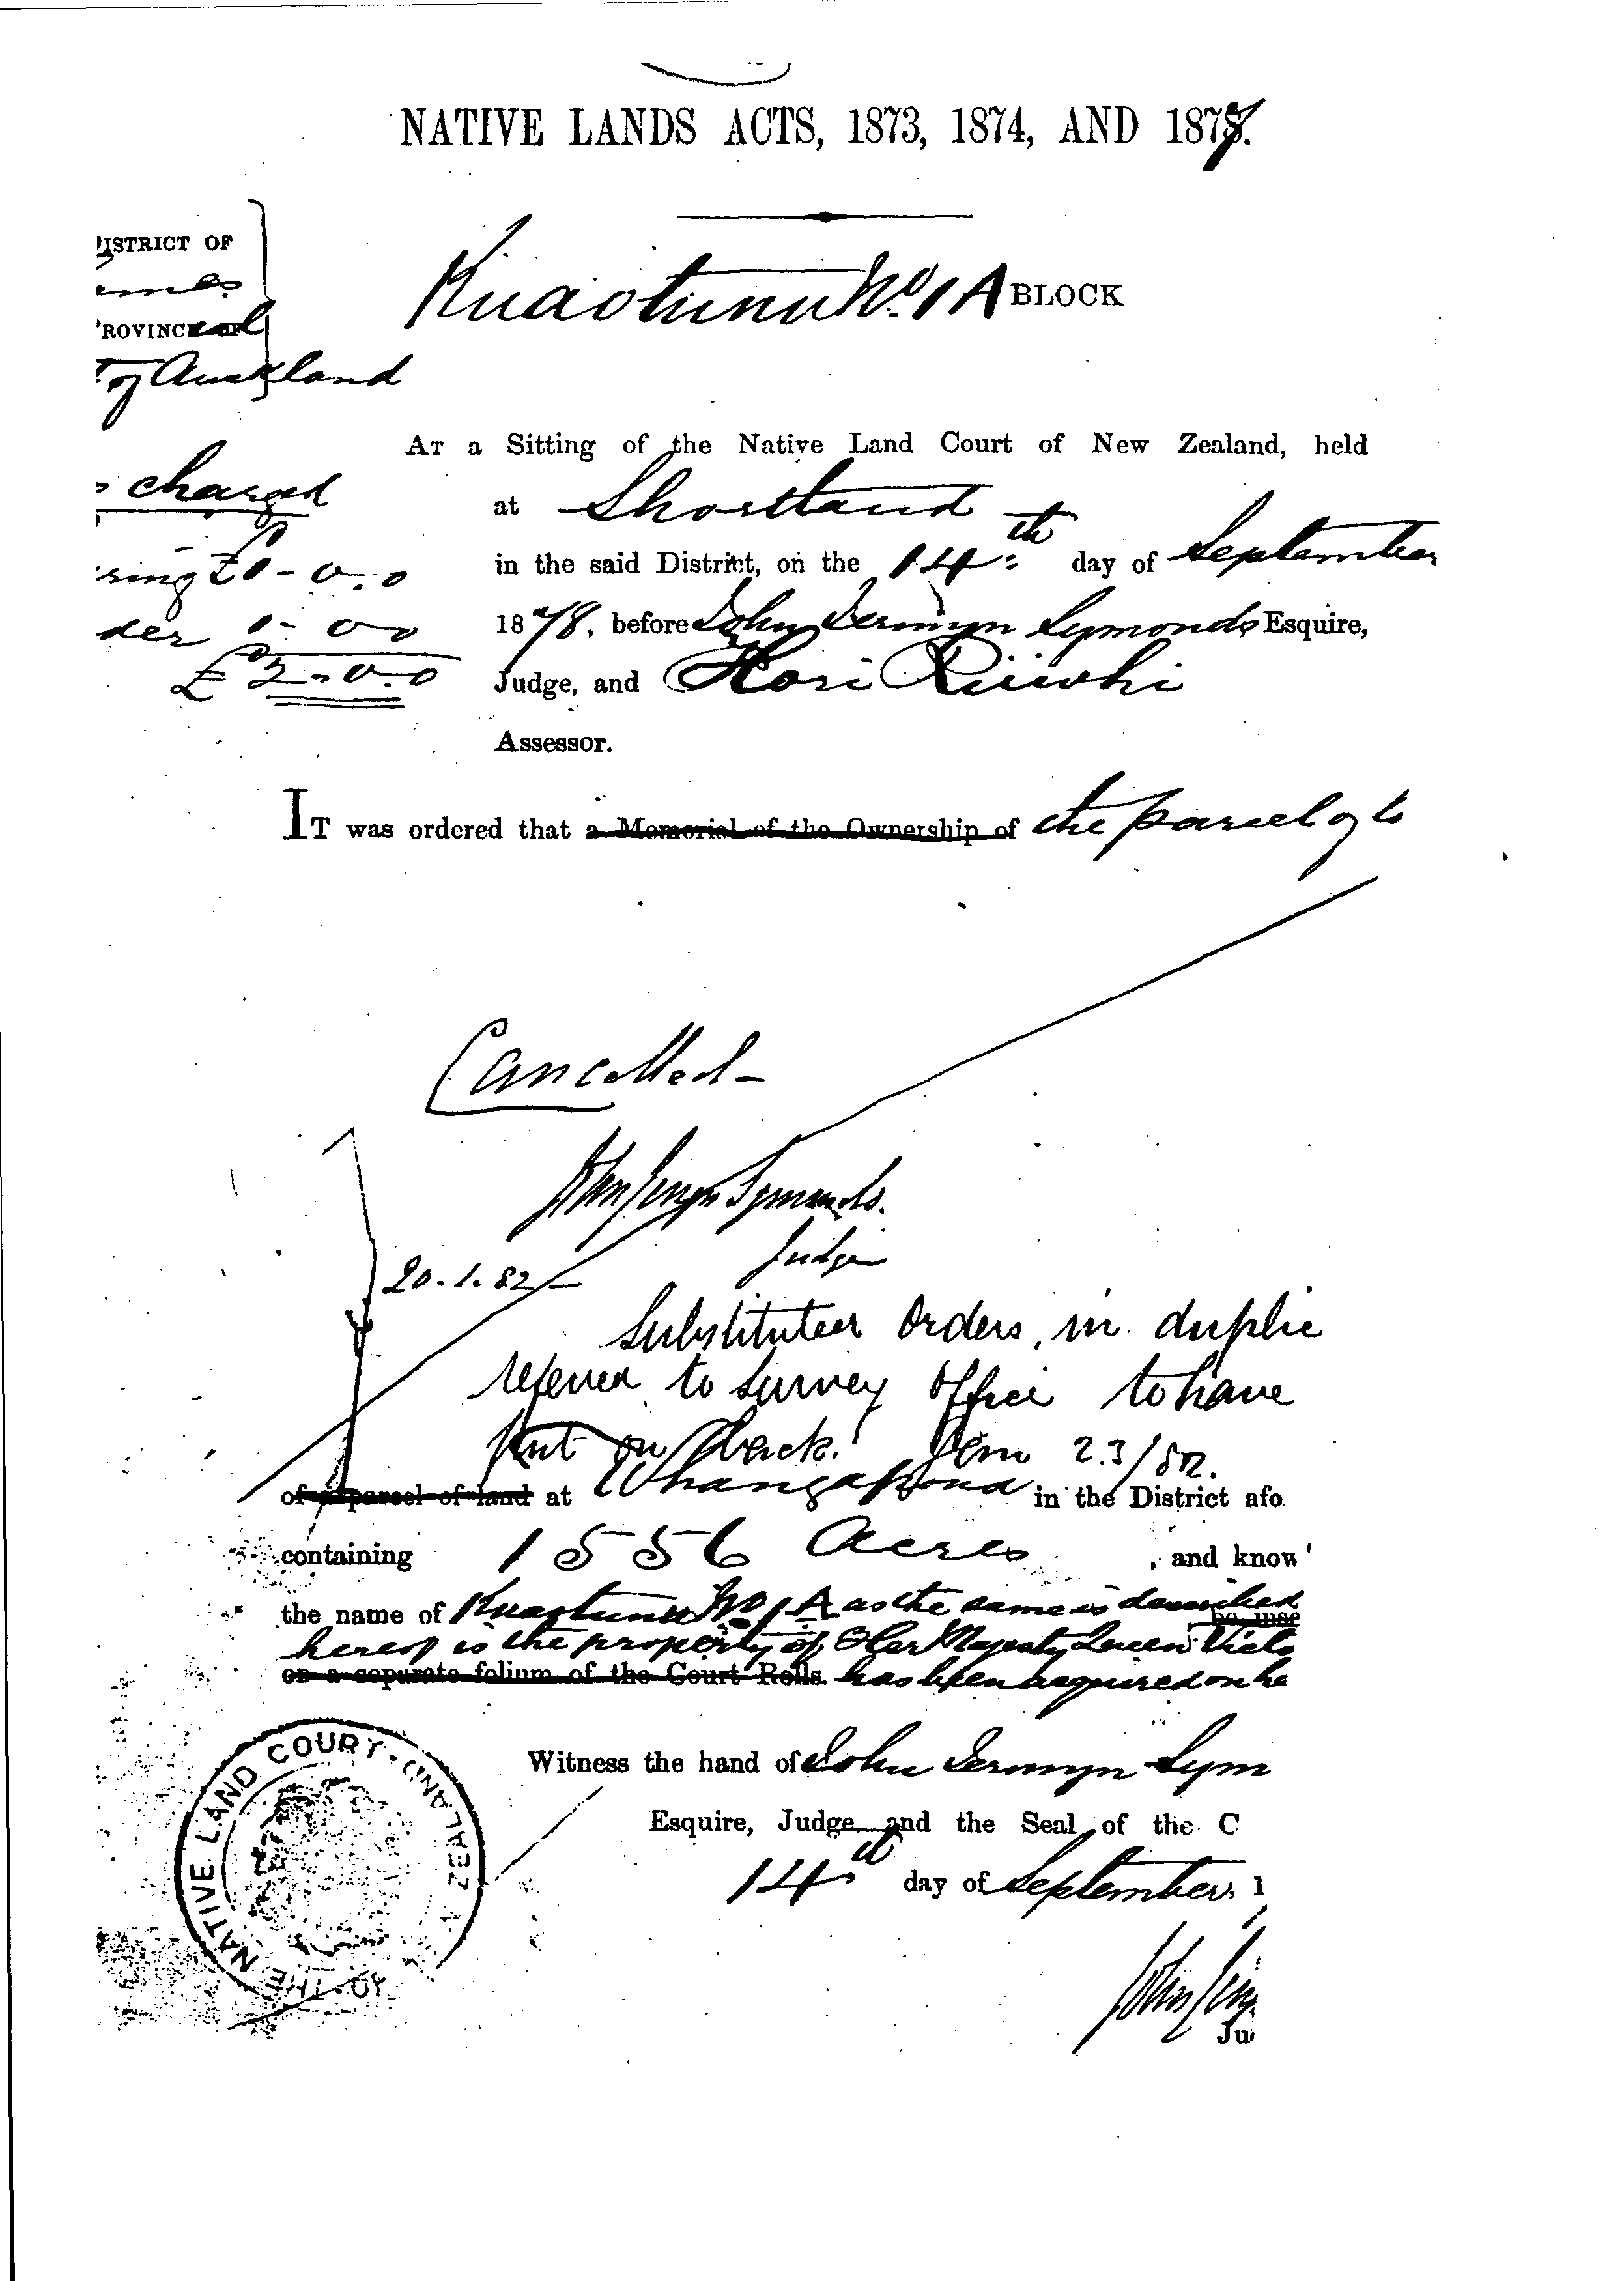 NATIVE LANDS ACTS, 1873, 1874, AND 1878.
DISTRICT OF
Kuaotunu No. 1 A BLOCK
ROVINCIAL
of Auckland
AT a Sitting of the Native Land Court of New Zealand, held
charged
at Shortland
in the said District, on the 14th day of September
ring £1-0.0
1878, before John Jermyn Symonds Esquire,
der 1-00
£2-0.0
Judge, and Hori Ririwhi
Assessor.
IT was ordered that a Memorial of the Ownership of the parcel of
Cancelled-
John Jermyn Symonds.
Judge
20.1.82
Substituted Orders, in duplic
referred to Survey Office to have
put on back. 2.3/82.
of a parcel of land at Whangapoua in the District afo
containing 1556 Acres, and know
the name of Kuaotunu No 1 A as the same is described
be inse
hereof is the property of Her Majesty Queen Victo
on a separate folium of the Court Rolls. has been acquired on he
Witness the hand of John Jermyn Sym
Esquire, Judge and the Seal of the C
14th day of September, 1
John Jerm
Ju
OF THE NATIVE LAND COURT
ZEALAND